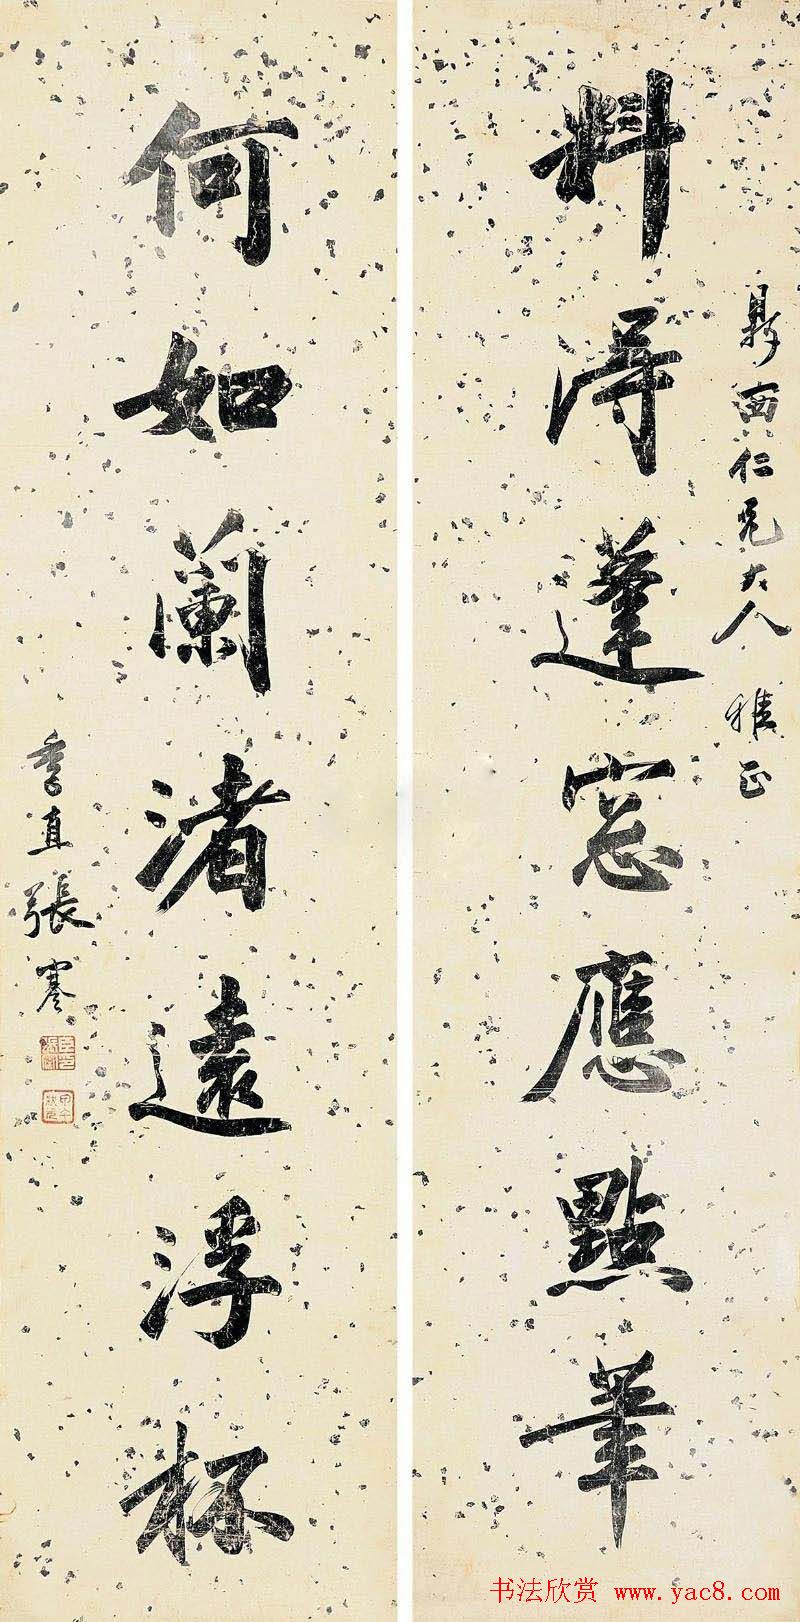 料得蓬窓應點筆
鼎西仁兄大人 雅正
何如蘭渚遠浮杯
季直張謇
书法欣赏 www.yac8.com